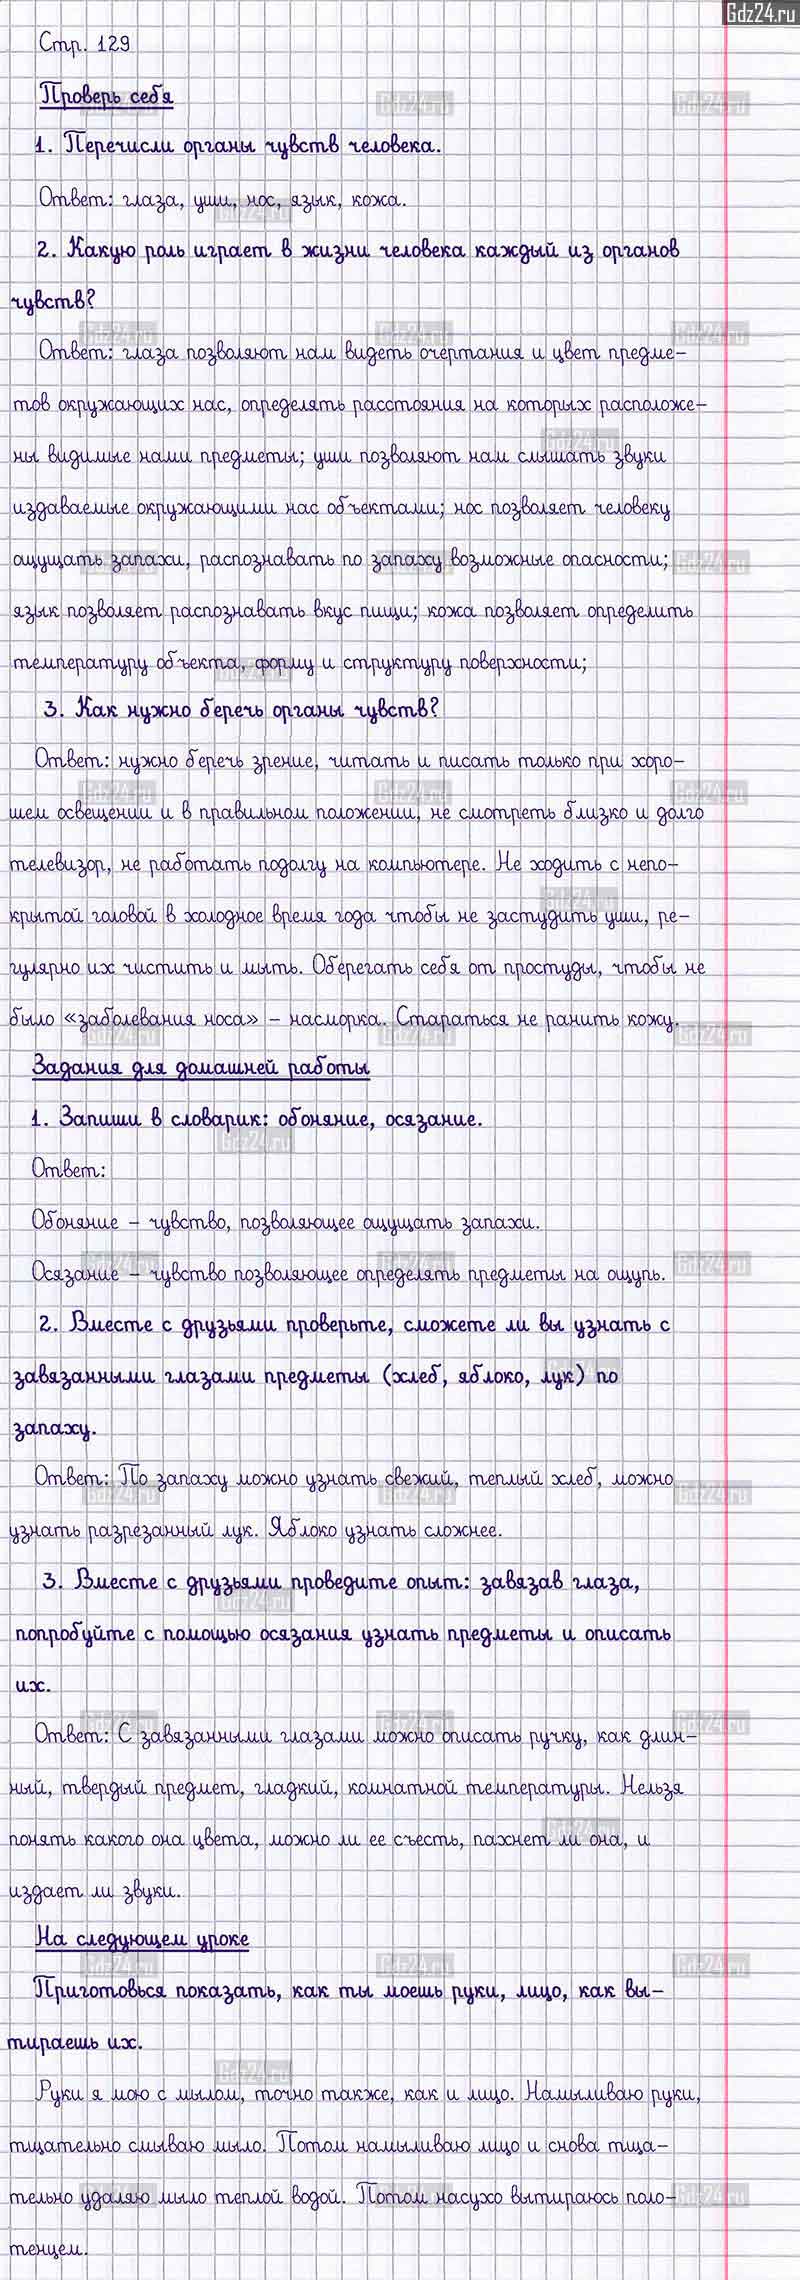 Gdz24.ru
Стр. 129
Проверь себя
1. Перечисли органы чувств человека.
Ответ: глаза, уши, нос, язык, кожа.
2. Какую роль играет в жизни человека каждый из органов
чувств?
Ответ: глаза позволяют нам видеть очертания и цвет предме-
тов окружающих нас, определять расстояния на которых расположе-
ны видимые нами предметы; уши позволяют нам слышать звуки
издаваемые окружающими нас объектами; нос позволяет человеку
ощущать запахи, распознавать по запаху возможные опасности;
язык позволяет распознавать вкус пищи; кожа позволяет определить
температуру объекта, форму и структуру поверхности;
3. Как нужно беречь органы чувств?
Ответ: нужно беречь зрение, читать и писать только при хоро-
шем освещении и в правильном положении, не смотреть близко и долго
телевизор, не работать подолгу на компьютере. Не ходить с непо-
крытой головой в холодное время года чтобы не застудить уши, ре-
гулярно их чистить и мыть. Оберегать себя от простуды, чтобы не
было «заболевания носа» – насморка. Стараться не ранить кожу.
Задания для домашней работы
1. Запиши в словарик: обоняние, осязание.
Ответ:
Обоняние – чувство, позволяющее ощущать запахи.
Осязание – чувство позволяющее определять предметы на ощупь.
2. Вместе с друзьями проверьте, сможете ли вы узнать с
завязанными глазами предметы (хлеб, яблоко, лук) по
запаху.
Ответ: По запаху можно узнать свежий, теплый хлеб, можно
узнать разрезанный лук. Яблоко узнать сложнее.
3. Вместе с друзьями проведите опыт: завязав глаза,
попробуйте с помощью осязания узнать предметы и описать
их.
Ответ: С завязанными глазами можно описать ручку, как длин-
ный, твердый предмет, гладкий, комнатной температуры. Нельзя
понять какого она цвета, можно ли ее съесть, пахнет ли она, и
издает ли звуки.
На следующем уроке
Приготовься показать, как ты моешь руки, лицо, как вы-
тираешь их.
Руки я мою с мылом, точно также, как и лицо. Намыливаю руки,
тщательно смываю мыло. Потом намыливаю лицо и снова тща-
тельно удаляю мыло теплой водой. Потом насухо вытираюсь поло-
тенцем.